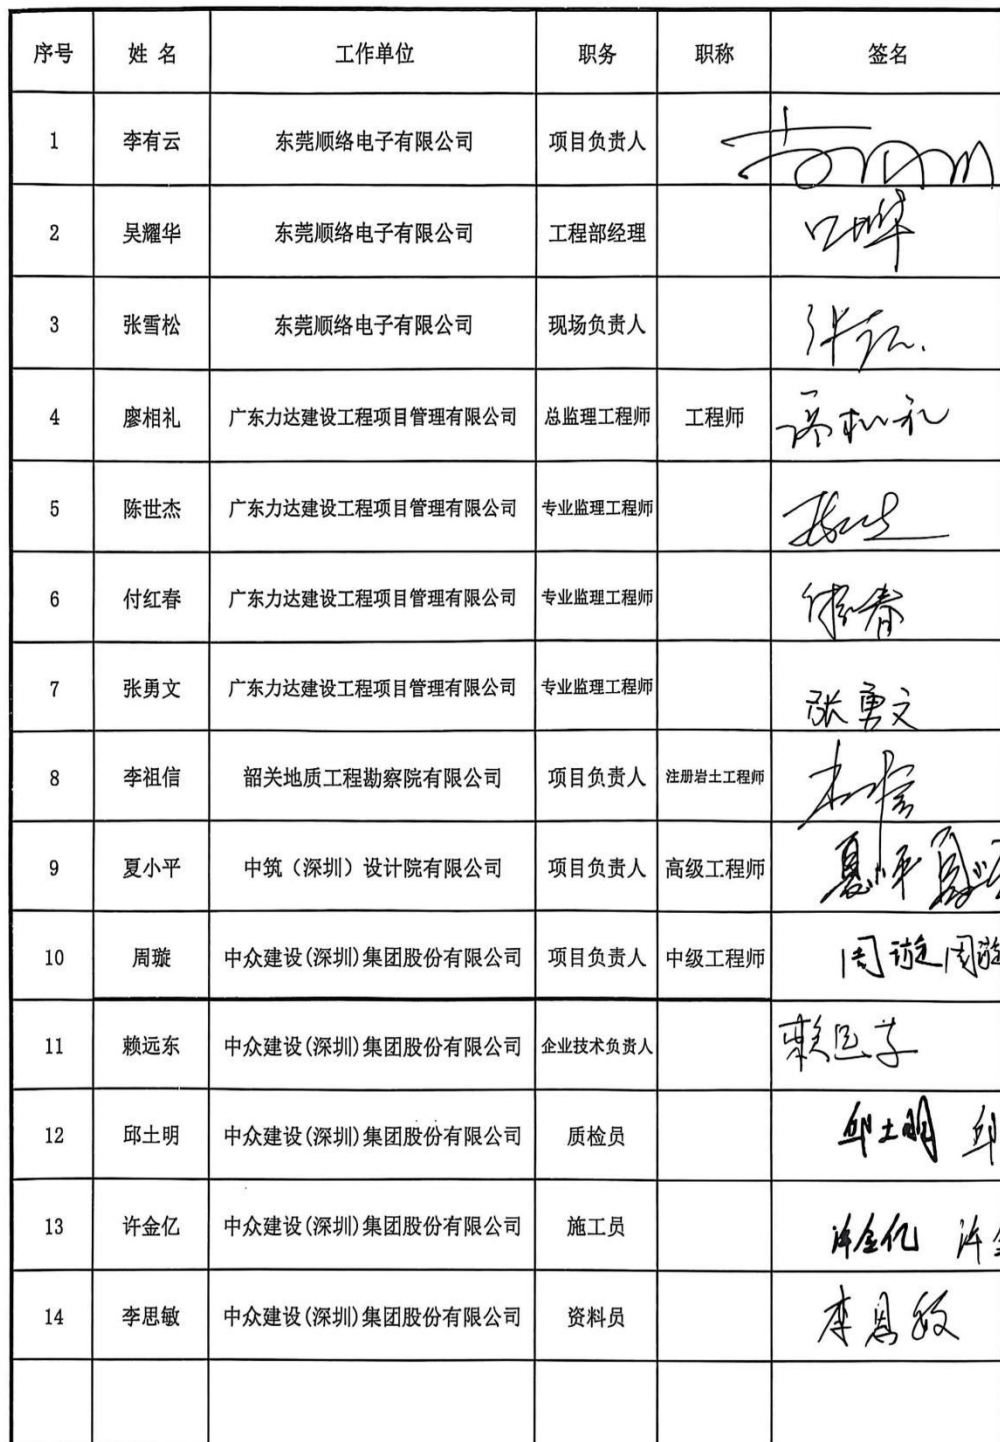 序号 姓 名 工作单位 职务 职称 签名
1 李有云 东莞顺络电子有限公司 项目负责人
2 吴耀华 东莞顺络电子有限公司 工程部经理
3 张雪松 东莞顺络电子有限公司 现场负责人
4 廖相礼 广东力达建设工程项目管理有限公司 总监理工程师 工程师 廖相礼
5 陈世杰 广东力达建设工程项目管理有限公司 专业监理工程师
6 付红春 广东力达建设工程项目管理有限公司 专业监理工程师
7 张勇文 广东力达建设工程项目管理有限公司 专业监理工程师 张勇文
8 李祖信 韶关地质工程勘察院有限公司 项目负责人 注册岩土工程师
9 夏小平 中筑（深圳）设计院有限公司 项目负责人 高级工程师 夏小平
10 周璇 中众建设(深圳)集团股份有限公司 项目负责人 中级工程师 周璇 周璇
11 赖远东 中众建设(深圳)集团股份有限公司 企业技术负责人 赖远东
12 邱土明 中众建设(深圳)集团股份有限公司 质检员 邱土明 邱
13 许金亿 中众建设(深圳)集团股份有限公司 施工员 许金亿 许金
14 李思敏 中众建设(深圳)集团股份有限公司 资料员 李思敏